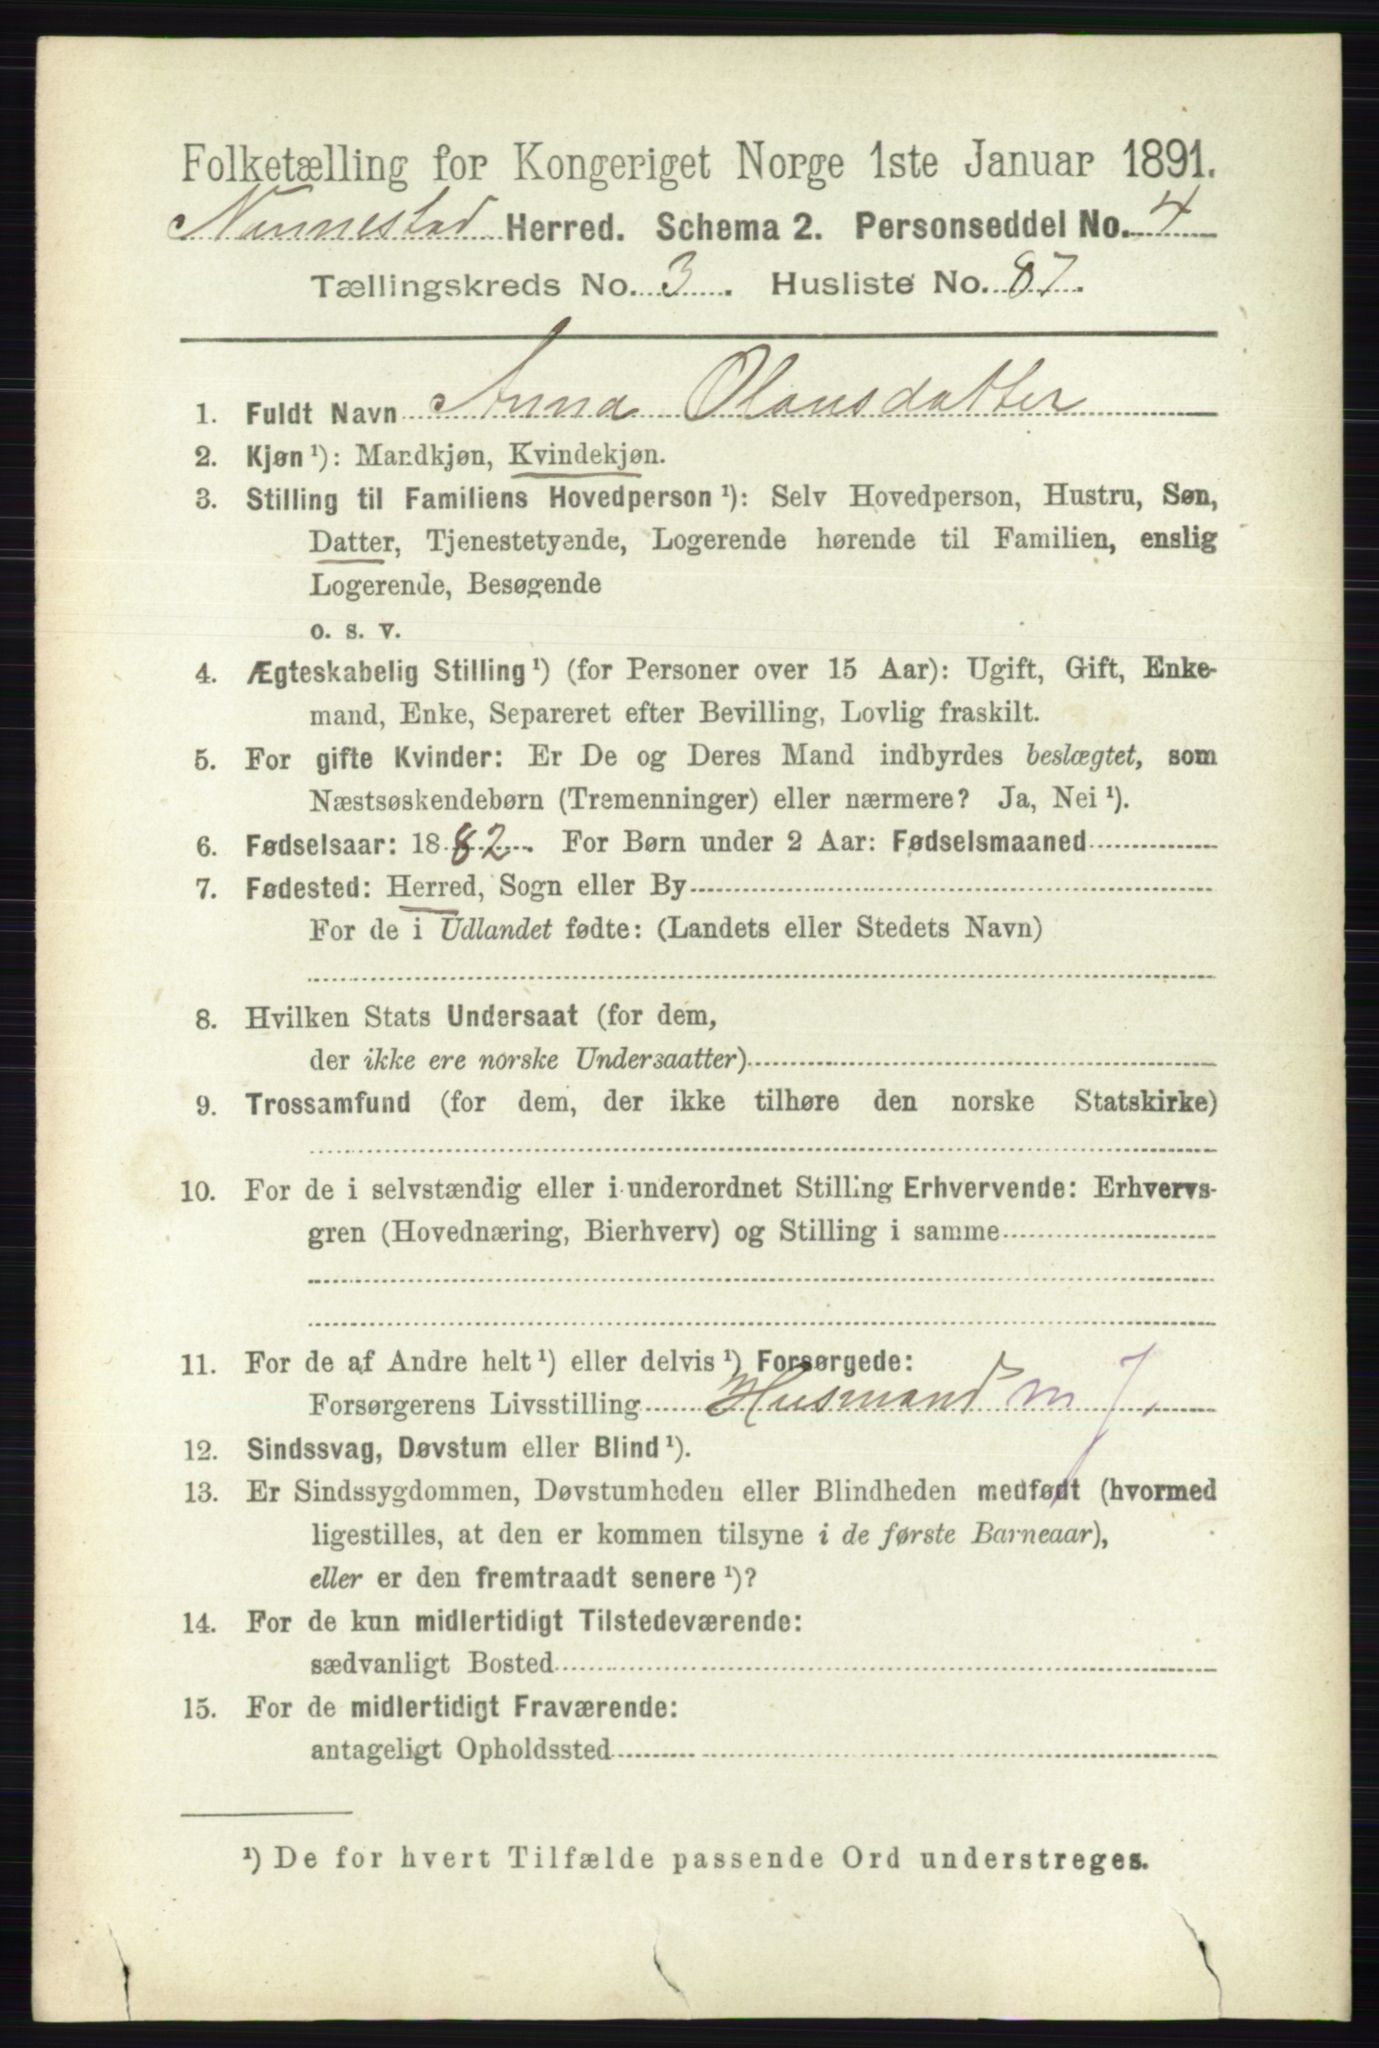 Folketælling for Kongeriget Norge 1ste Januar 1891.
Nannestad Herred. Schema 2. Personseddel No. 4
Tællingskreds No. 3. Husliste No. 87.
1. Fuldt Navn Anna Olausdatter
2. Kjøn ¹): Mandkjøn, Kvindekjøn.
3. Stilling til Familiens Hovedperson ¹): Selv Hovedperson, Hustru, Søn,
Datter, Tjenestetyende, Logerende hørende til Familien, enslig
Logerende, Besøgende
o. s. v.
4. Ægteskabelig Stilling ¹) (for Personer over 15 Aar): Ugift, Gift, Enke-
mand, Enke, Separeret efter Bevilling, Lovlig fraskilt.
5. For gifte Kvinder: Er De og Deres Mand indbyrdes beslægtet, som
Næstsøskendebørn (Tremenninger) eller nærmere? Ja, Nei ¹).
6. Fødselsaar: 1882. For Børn under 2 Aar: Fødselsmaaned
7. Fødested: Herred, Sogn eller By
For de i Udlandet fødte: (Landets eller Stedets Navn)
8. Hvilken Stats Undersaat (for dem,
der ikke ere norske Undersaatter)
9. Trossamfund (for dem, der ikke tilhøre den norske Statskirke)
10. For de i selvstændig eller i underordnet Stilling Erhvervende: Erhvervs-
gren (Hovednæring, Bierhverv) og Stilling i samme
11. For de af Andre helt ¹) eller delvis ¹) Forsørgede:
Forsørgerens Livsstilling Husmand m J.
12. Sindssvag, Døvstum eller Blind ¹).
13. Er Sindssygdommen, Døvstumheden eller Blindheden medfødt (hvormed
ligestilles, at den er kommen tilsyne i de første Barneaar),
eller er den fremtraadt senere ¹)?
14. For de kun midlertidigt Tilstedeværende:
sædvanligt Bosted
15. For de midlertidigt Fraværende:
antageligt Opholdssted
¹) De for hvert Tilfælde passende Ord understreges.